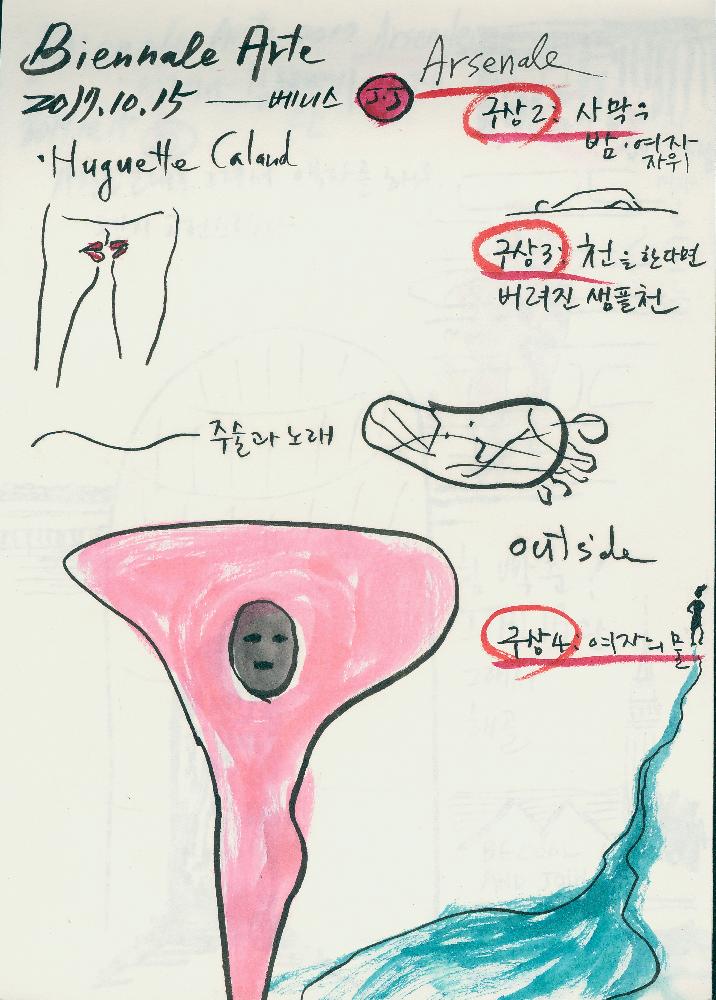 Biennale Arte
2017.10.15 — 베니스
J.J
Arsenale
·Huguette Caland
구상2: 사막의
밤·여자
자위
구상3: 천을 한다면
버려진 샘플천
주술과 노래
outside
구상4: 여자의 물